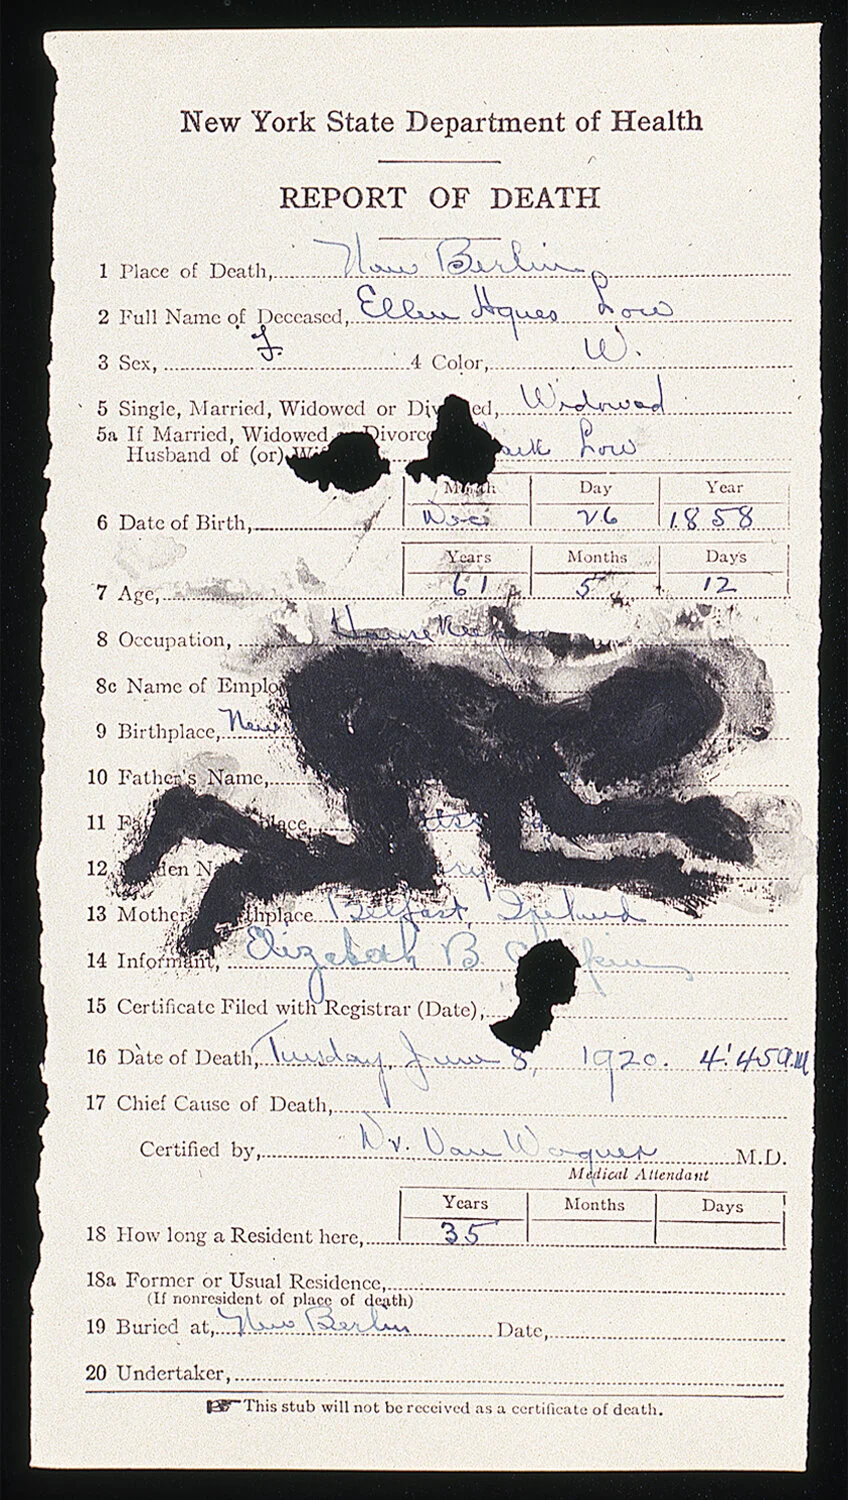 New York State Department of Health
REPORT OF DEATH
1 Place of Death, New Berlin
2 Full Name of Deceased, Ellen Agnes Low
3 Sex, F. 4 Color, W.
5 Single, Married, Widowed or Div ed, Widowed
5a If Married, Widowed Divorc
Husband of (or) Low
Month Day Year
6 Date of Birth, 26 1858
Years Months Days
7 Age, 61 5 12
8 Occupation, House
8c Name of Emplo
9 Birthplace, New
10 Father's Name,
11 Fa lace
12 den N
13 Mother thplace Belfast, Ireland
14 Informant, Elizabeth B.
15 Certificate Filed with Registrar (Date),
16 Date of Death, Tuesday, June 8, 1920. 4:45 a.m
17 Chief Cause of Death,
Certified by, Dr. Van Wagner M.D.
Medical Attendant
Years Months Days
18 How long a Resident here, 35
18a Former or Usual Residence,
(If nonresident of place of death)
19 Buried at, New Berlin Date,
20 Undertaker,
☞ This stub will not be received as a certificate of death.